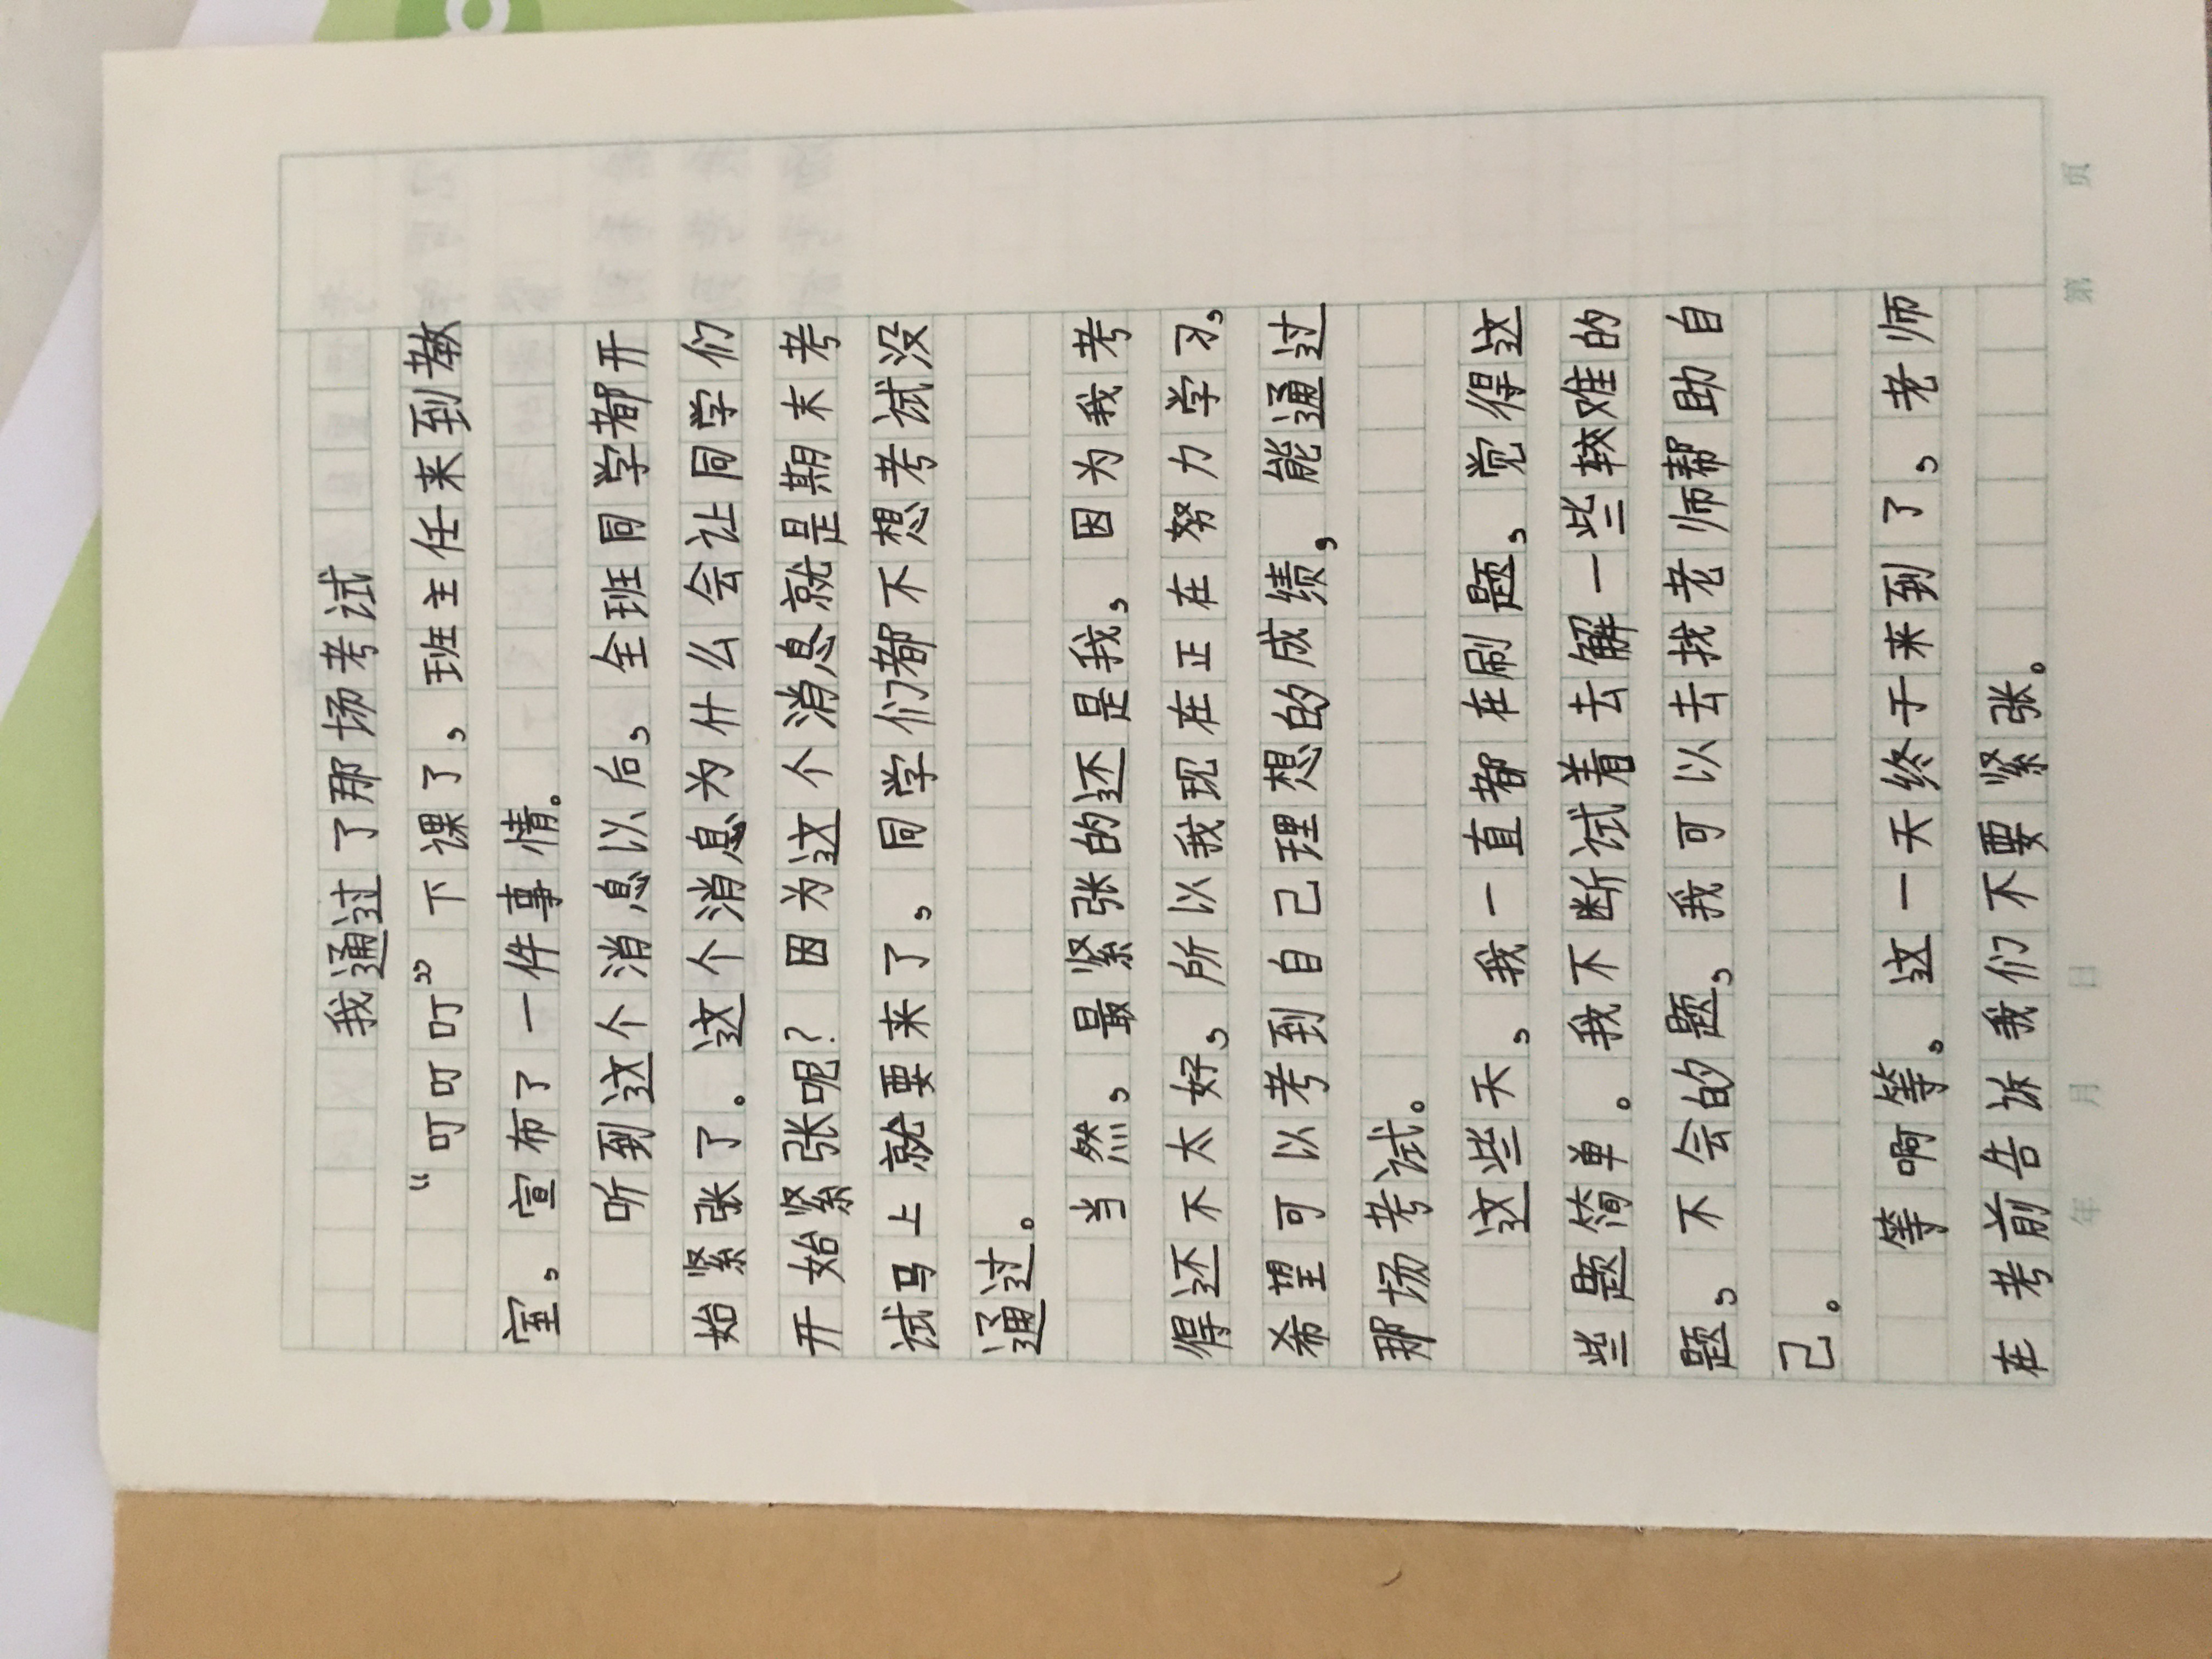 我通过了那场考试
“叮叮叮”下课了，班主任来到教
室，宣布了一件事情。
听到这个消息以后，全班同学都开
始紧张了。这个消息为什么会让同学们
开始紧张呢？因为这个消息就是期末考
试马上就要来了，同学们都不想考试没
通过。
当然，最紧张的还是我，因为我考
得还不太好，所以我现在正在努力学习，
希望可以考到自己理想的成绩，能通过
那场考试。
这些天，我一直都在刷题，觉得这
些题简单。我不断试着去解一些较难的
题，不会的题，我可以去找老师帮助自
己。
等啊等，这一天终于来到了，老师
在考前告诉我们不要紧张。
年 月 日 第 页